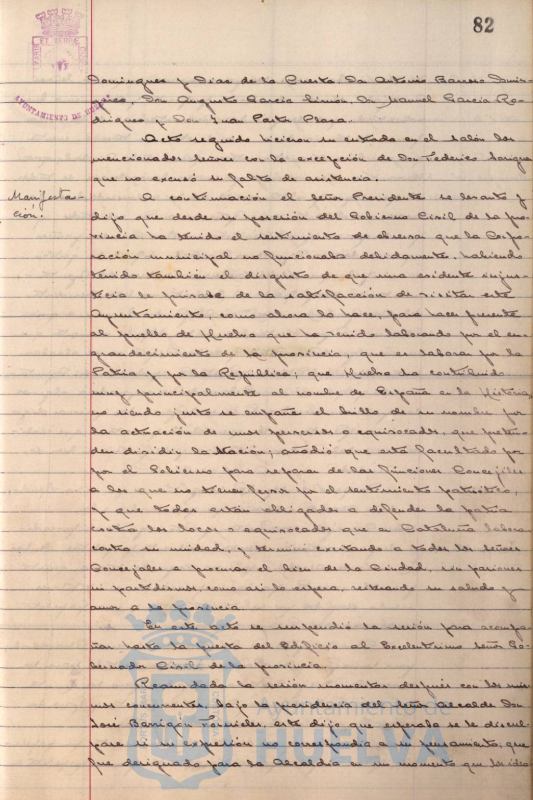 82
AYUNTAMIENTO DE HUELVA
Dominguez y Diaz de la Cuesta, Dn Antonio Barroso Domin-
guez, Don Augusto Garcia Limón, Dn Manuel Garcia Ro-
driguez y Don Juan Plaza.
Acto seguido hicieron su entrada en el salón los
mencionados señores con la excepción de Don Federico
que no excusó su falta de asistencia.
Manifesta-
ción.
A continuación el señor Presidente se levantó y
dijo que desde su posesión del Gobierno Civil de la pro-
vincia ha tenido el sentimiento de observar que la Corpo-
ración municipal no funcionaba debidamente, habiendo
tenido también el disgusto de que una evidente injus-
ticia le privase de la satisfacción de visitar este
Ayuntamiento, como ahora lo hace, para hacer presente
al pueblo de Huelva que ha venido laborando por el en-
grandecimiento de la provincia, que es laborar por la
Patria y por la República; que Huelva ha contribuido
muy principalmente al nombre de España en la Historia,
no siendo justo se empañe el brillo de su nombre por
la actuación de unos perversos o equivocados, que preten-
den dividir la Nación; añadió que está facultado por
por el Gobierno para separar de las funciones Concejiles
a los que no tienen fervor por el sentimiento patriótico,
y que todos están obligados a defender la patria
contra los locos o equivocados que en Cataluña laboran
contra su unidad, y terminó excitando a todos los señores
Concejales a procurar el bien de la Ciudad, sin pasiones
ni partidismos, como así lo espera, reiterando su saludo y
amor a la provincia.
En este acto se suspendió la sesión para acompa-
ñar hasta la puerta del Edificio al Excelentísimo señor Go-
bernador Civil de la provincia.
Reanudada la sesión momentos después con los mis-
mos concurrentes, bajo la presidencia del señor Alcalde Don
José Barrigón Fornieles, este dijo que esperaba se le discul-
pare si su expresión no correspondía a su pensamiento; que
fue designado para la Alcaldía en un momento que los
Ayuntamiento de
HUELVA